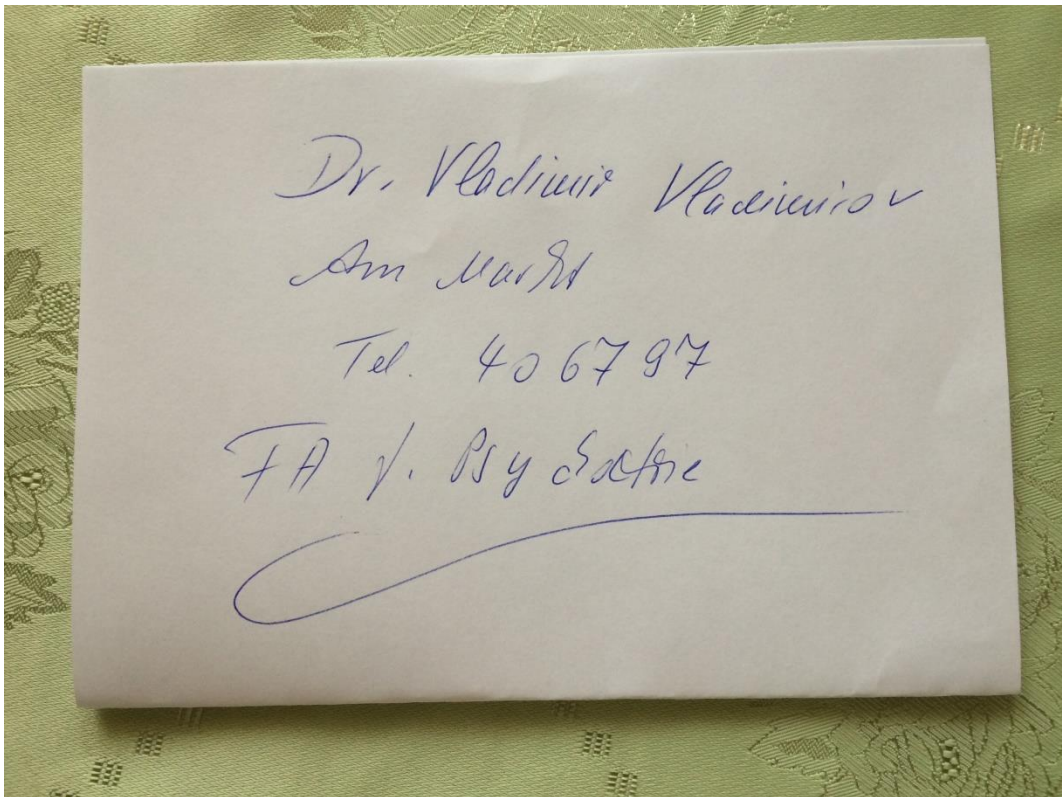 Dr. Vladimir Vladimirov
Am Markt
Tel. 40 67 97
FA f. Psychiatrie